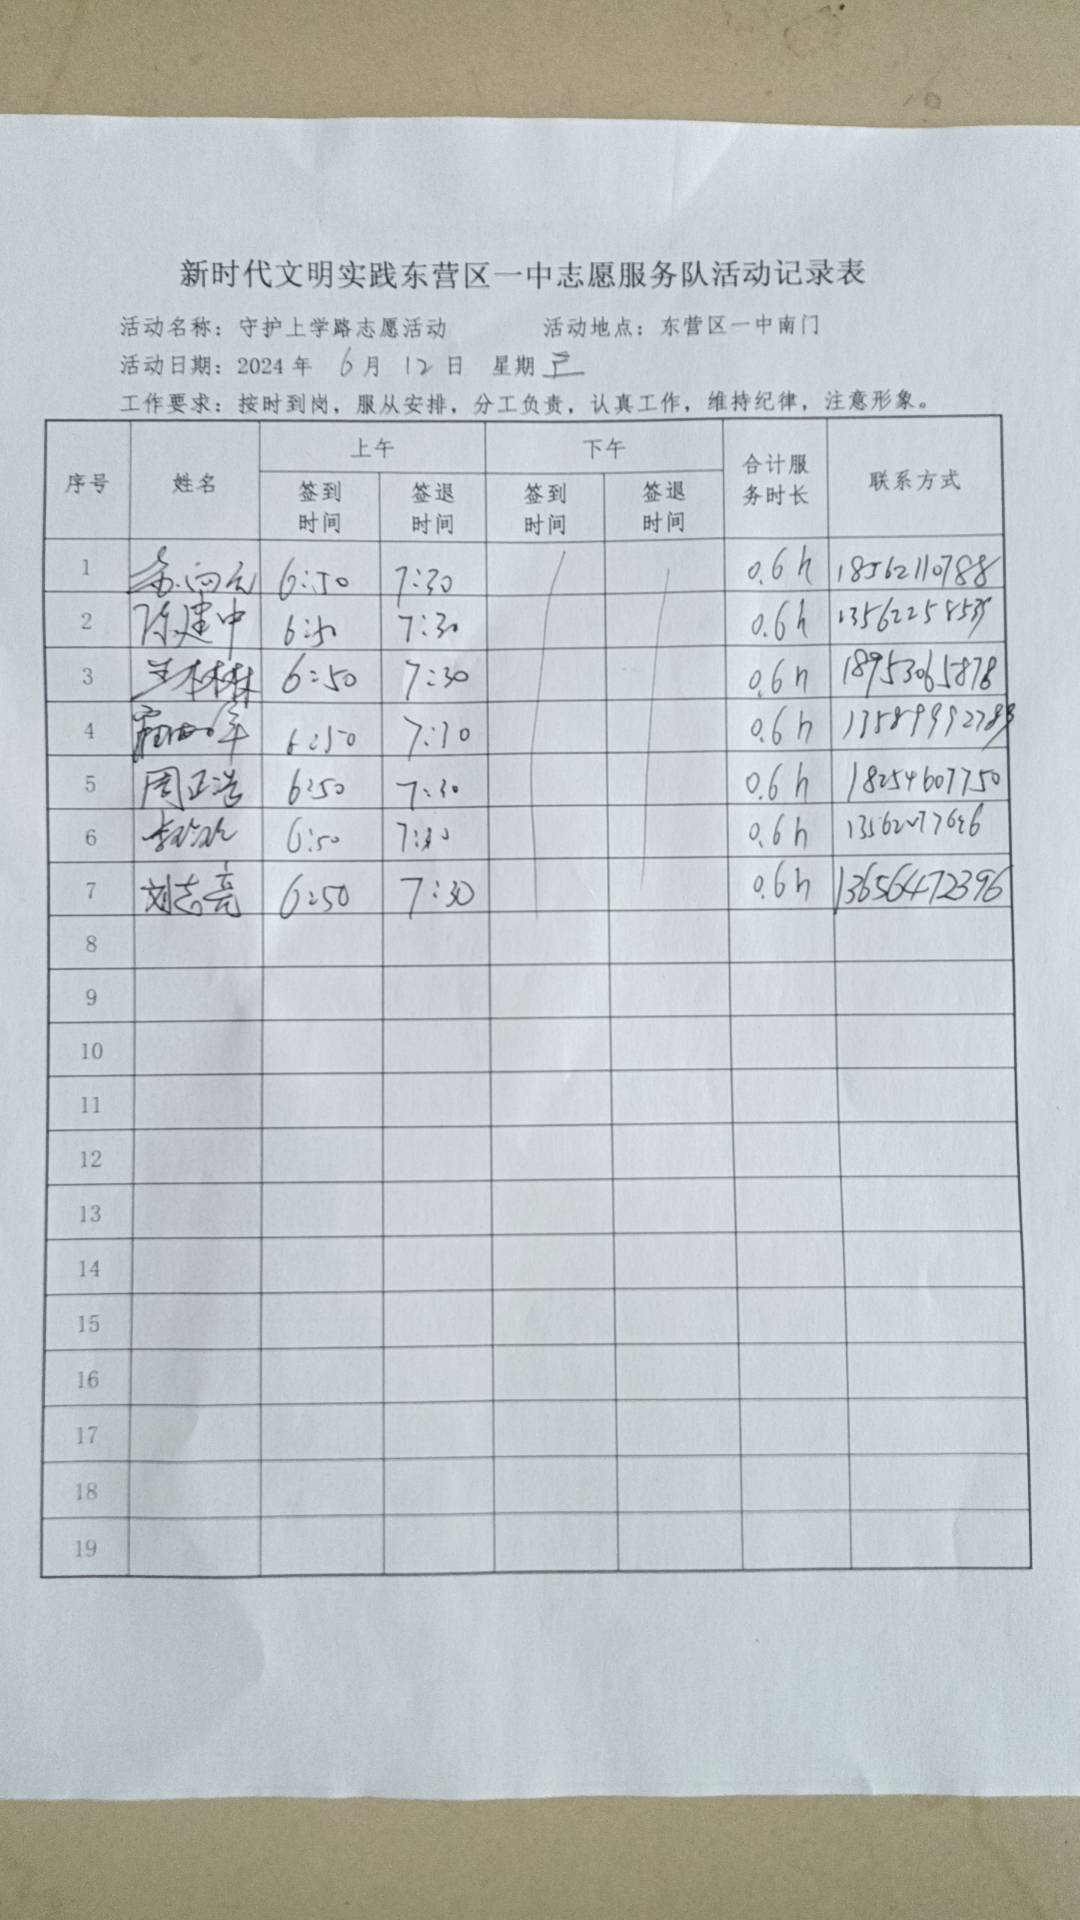 新时代文明实践东营区一中志愿服务队活动记录表
活动名称：守护上学路志愿活动 活动地点：东营区一中南门
活动日期：2024 年 6 月 12 日 星期 三
工作要求：按时到岗，服从安排，分工负责，认真工作，维持纪律，注意形象。
序号 姓名 上午 下午 合计服务时长 联系方式
签到时间 签退时间 签到时间 签退时间
1 6:50 7:30 0.6h 18562110788
2 陈建中 6:50 7:30 0.6h 13562258535
3 兰林林 6:50 7:30 0.6h 18953065878
4 6:50 7:30 0.6h
5 周正浩 6:50 7:30 0.6h 18254607750
6 6:50 7:30 0.6h
7 刘志亮 6:50 7:30 0.6h 13656472396
8
9
10
11
12
13
14
15
16
17
18
19